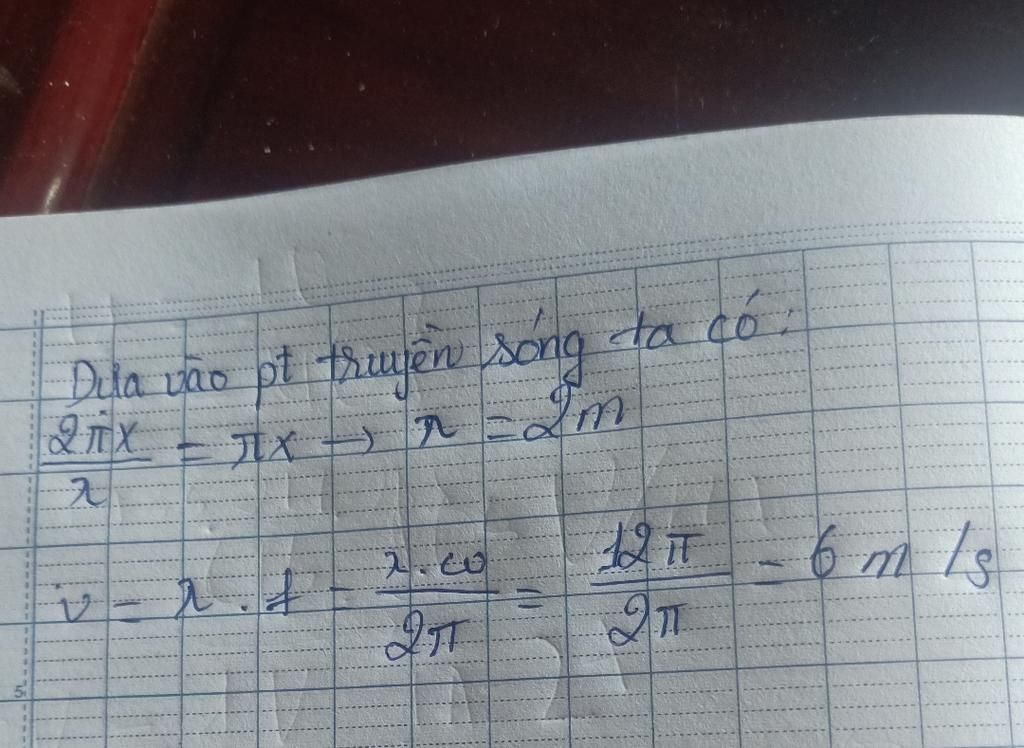 Dựa vào pt truyền sóng ta có:
2πx/λ = πx → λ = 2m
v = λ.f = λ.ω/2π = 12π/2π = 6 m/s
5